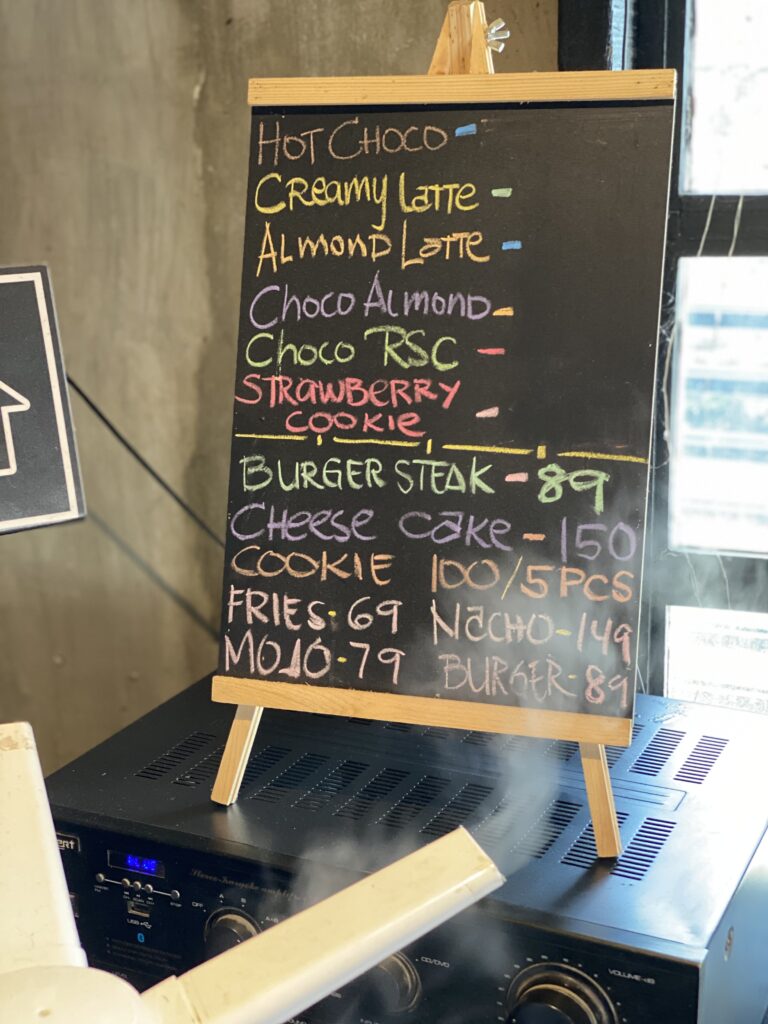 HOT CHOCO -
CReamy LaTTe -
ALMOND LaTTe -
CHOCO ALMOND -
CHOCO RSC -
STRAWBERRY -
COOKIE
BURGER STEAK - 89
CHEESE CaKe - 150
COOKIE 100/5PCS
FRIES - 69 NaCHO - 149
MOJO - 79 BURGER - 89
USB
OFF A B A+B
CD/DVD
VOLUME